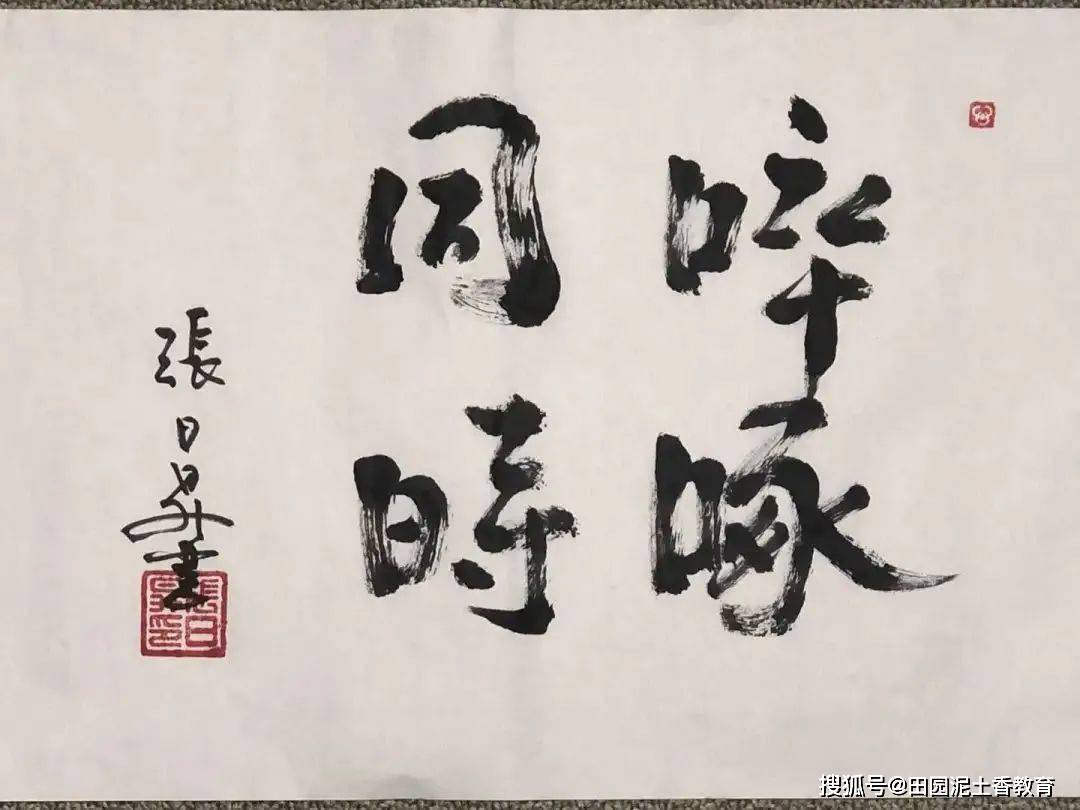 啐啄
同時
張日昇書
搜狐号@田园泥土香教育